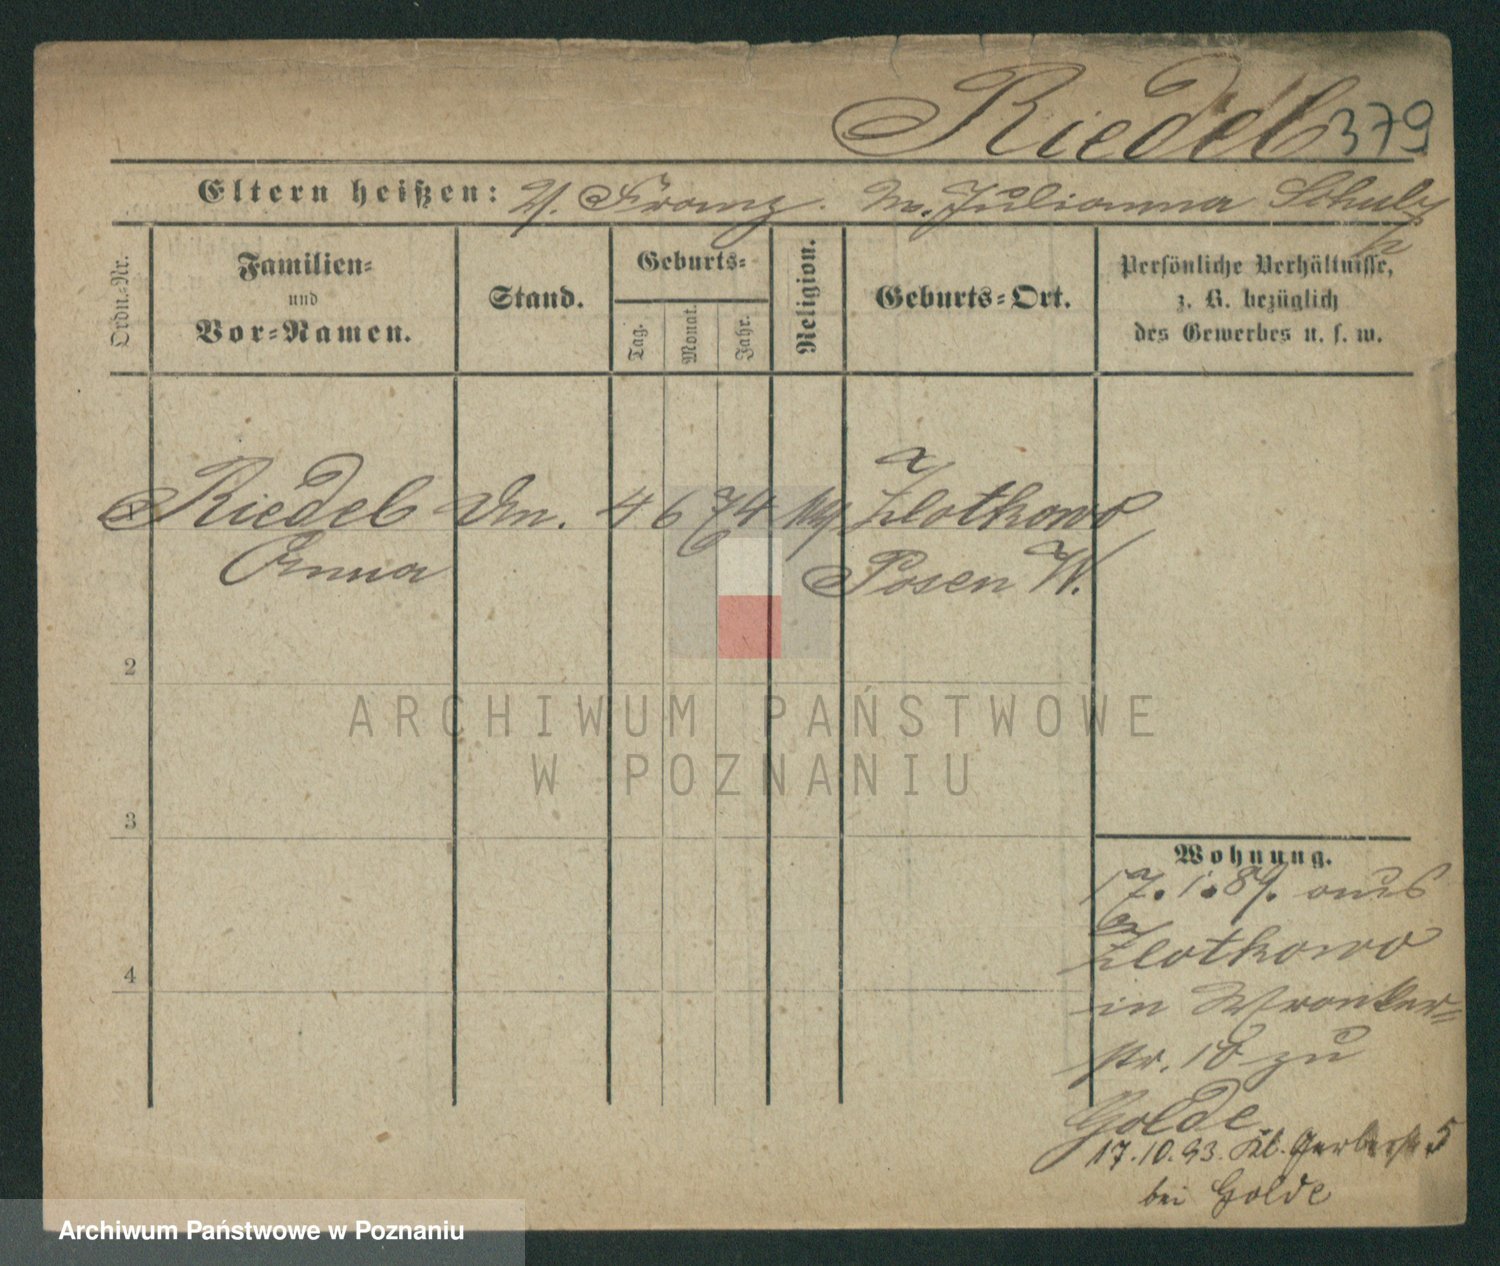 Riedel 379
Eltern heißen: V. Franz. M. Julianna Schulz
Ordn.-Nr.
Familien-
und
Vor-Namen.
Stand.
Geburts-
Tag.
Monat.
Jahr.
Religion.
Geburts-Ort.
Persönliche Verhältnisse,
z. B. bezüglich
des Gewerbes u. s. w.
1 Riedel 4 6 74 Zlotkowo
Anna Posen W.
2
3
4
Wohnung.
17. 1. 89. aus
Zlotkowo
in Wronker-
str. 18 zu
Golde.
17.10.93. Kl. Gerberstr 5
bei Golde
ARCHIWUM PAŃSTWOWE
W POZNANIU
Archiwum Państwowe w Poznaniu